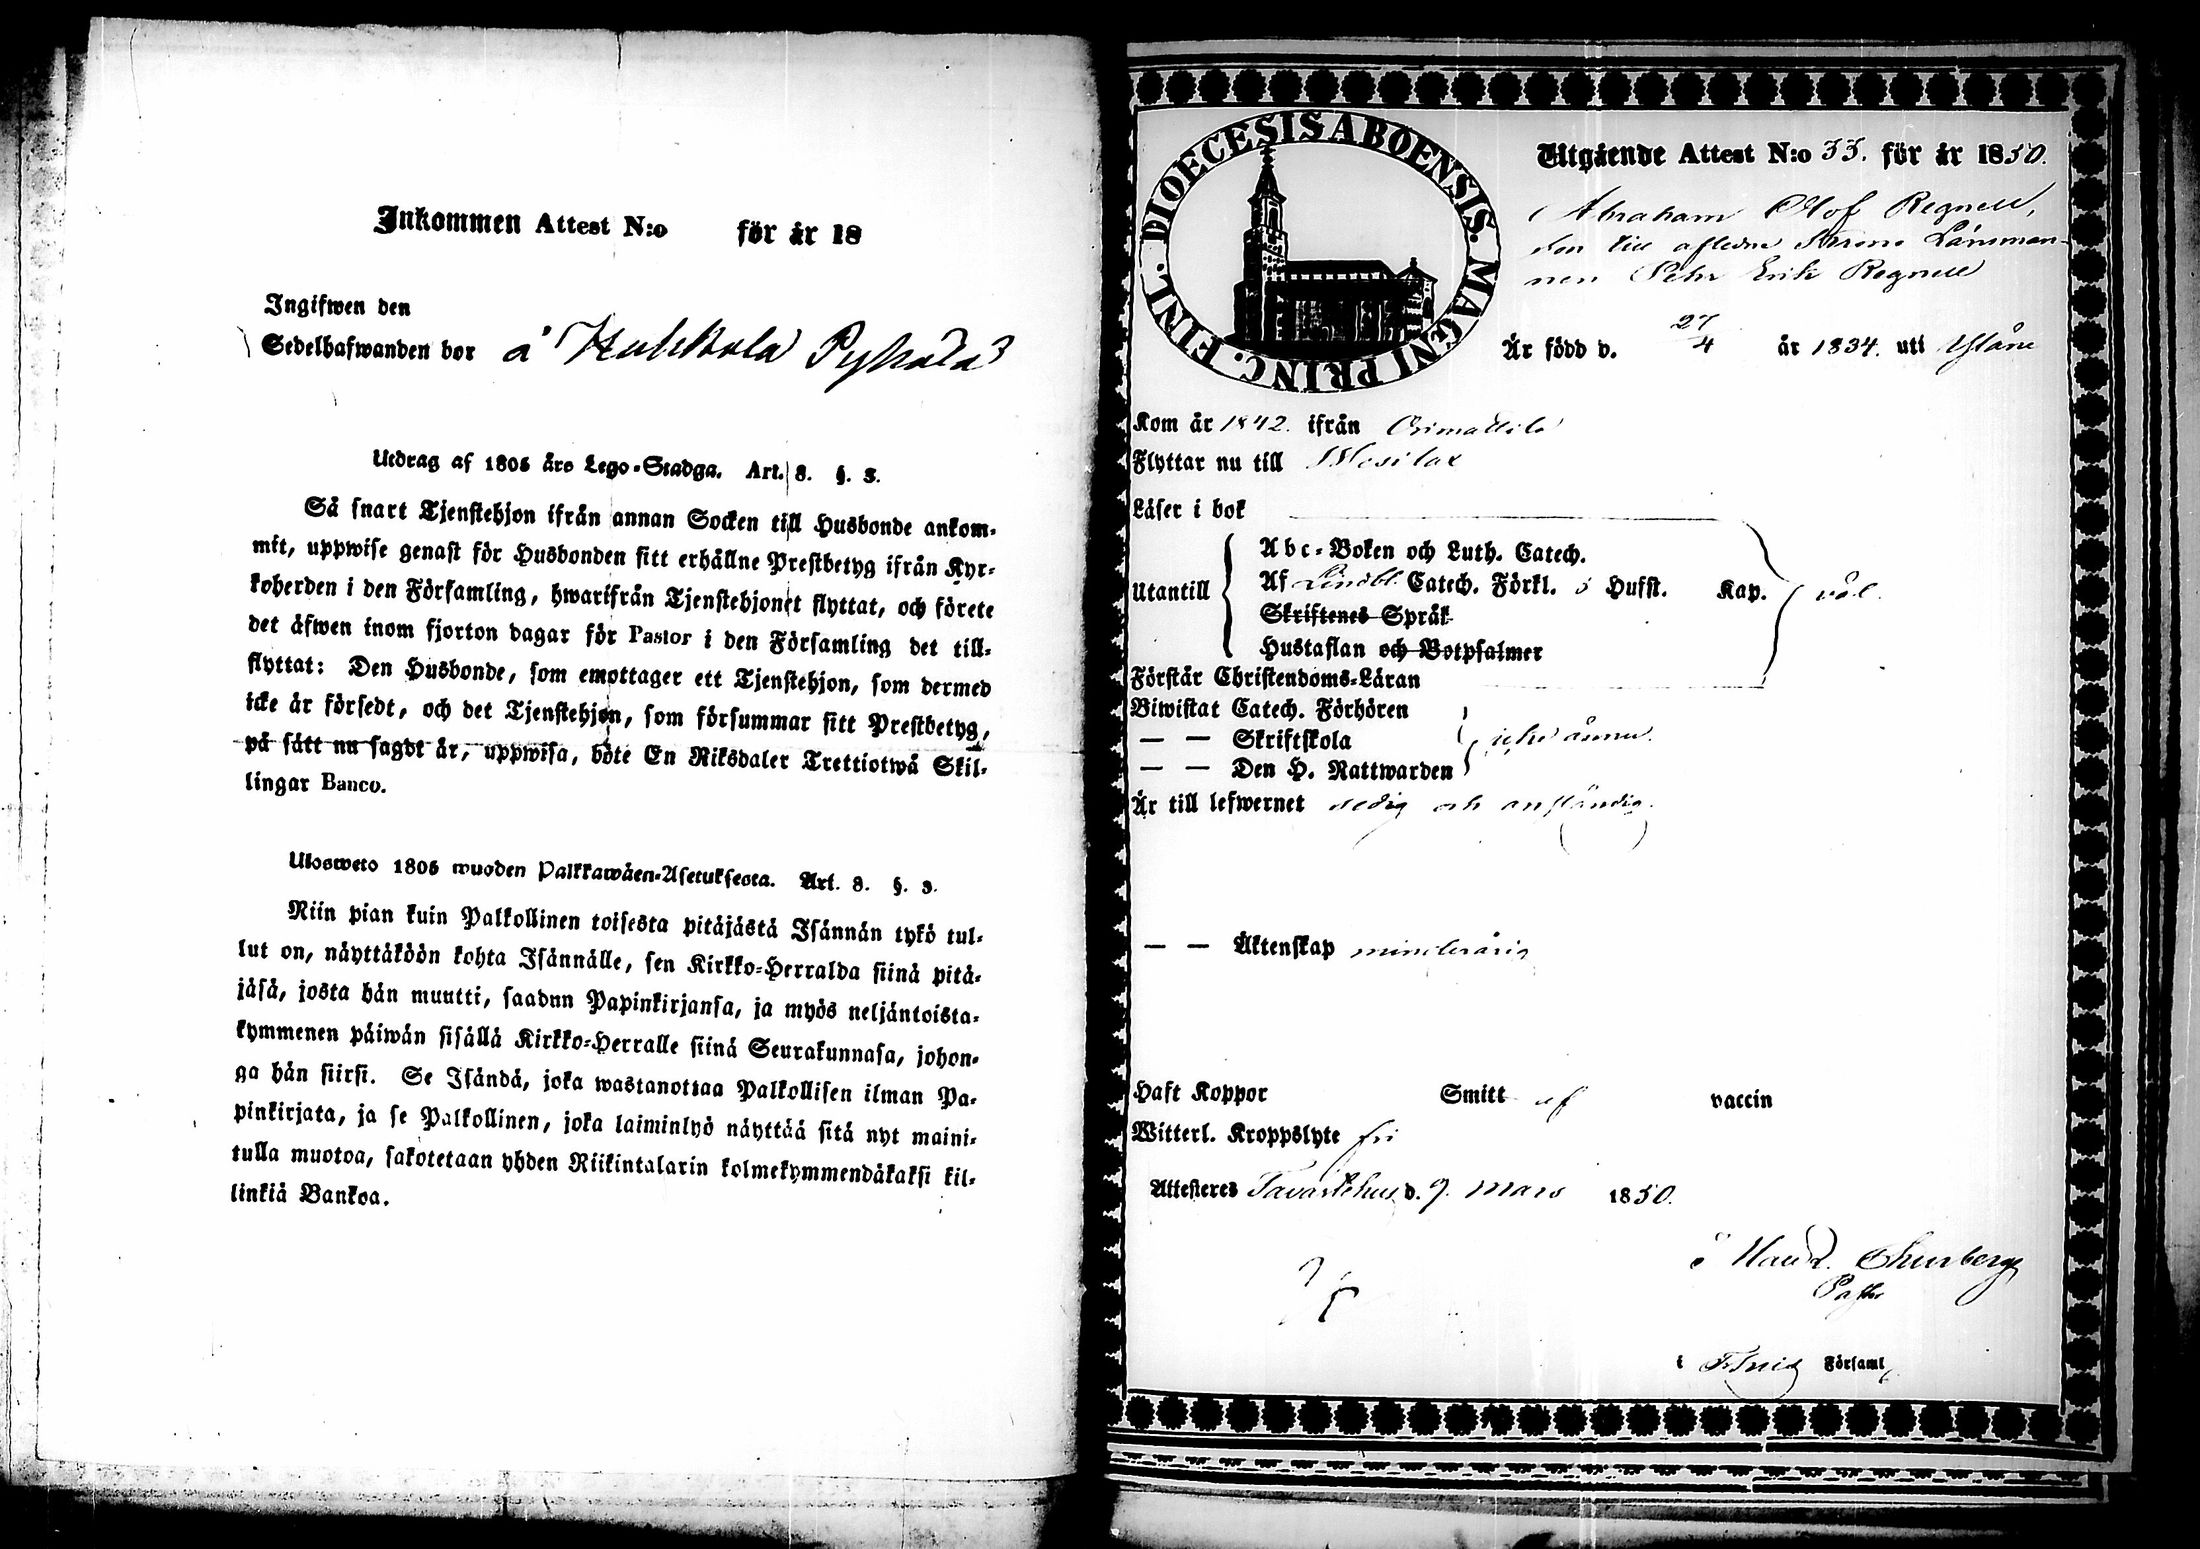 Inkommen Attest N:o för år 18
Ingifwen den
Sedelhafwanden bor å Huhkola Pyhälä
Utdrag af 1805 års Lego-Stadga. Art. 8. §. 3.
Så snart Tjenstehjon ifrån annan Socken till Husbonde ankom-
mit, uppwise genast för Husbonden sitt erhållne Prestbetyg ifrån Kyr-
koherden i den Församling, hwarifrån Tjenstehjonet flyttat, och förete
det äfwen inom fjorton dagar för Pastor i den Församling det till-
flyttat: Den Husbonde, som emottager ett Tjenstehjon, som dermed
icke är försedt, och det Tjenstehjon, som försummar sitt Prestbetyg,
på sätt nu sagdt är, uppwisa, böte En Riksdaler Trettiotwå Skil-
lingar Banco.
Ulosweto 1805 wuoden Palkkawäen-Asetuksesta. Art. 8. §. 3.
Niin pian kuin Palkollinen toisesta pitäjästä Isännän tykö tul-
lut on, näyttäköön kohta Isännälle, sen Kirkko-Herralda siinä pitä-
jäsä, josta hän muutti, saadun Papinkirjansa, ja myös neljäntoista-
kymmenen päiwän sisällä Kirkko-Herralle siinä Seurakunnasa, johon-
ga hän siirsi. Se Isändä, joka wastanottaa Palkollisen ilman Pa-
pinkirjata, ja se Palkollinen, joka laiminlyö näyttää sitä nyt maini-
tulla muotoa, sakotetaan yhden Riikintalarin kolmekymmendäkaksi kil-
linkiä Bankoa.
DIOECESIS ABOENSIS. MAGNI PRINC. FINL.
Utgående Attest N:o 33. för år 1850.
Abraham Olof Regnell,
son till aflidne Länsman-
nen Pehr Erik Regnell
Är född d. 27/4 år 1834. uti Yläne
Kom år 1842. ifrån Orimattila
Flyttar nu till
Läser i bok
Utantill
Abc-Boken och Luth. Catech.
Af Lindbl. Catech. Förkl. 5 Hufst. Kap. väl.
Skriftenes Språk
Hustaflan och Botpsalmer
Förstår Christendoms-Läran
Biwistat Catech. Förhören
— — Skriftskola icke ännu.
— — Den H. Nattwarden
Är till lefwernet sedig och anständig.
— — Äktenskap minderårig
Haft Koppor Smitt af vaccin
Witterl. Kroppslyte fri
Attesteres Tavastehus d. 9. mars 1850.
Thurberg
Pastor
i Församl